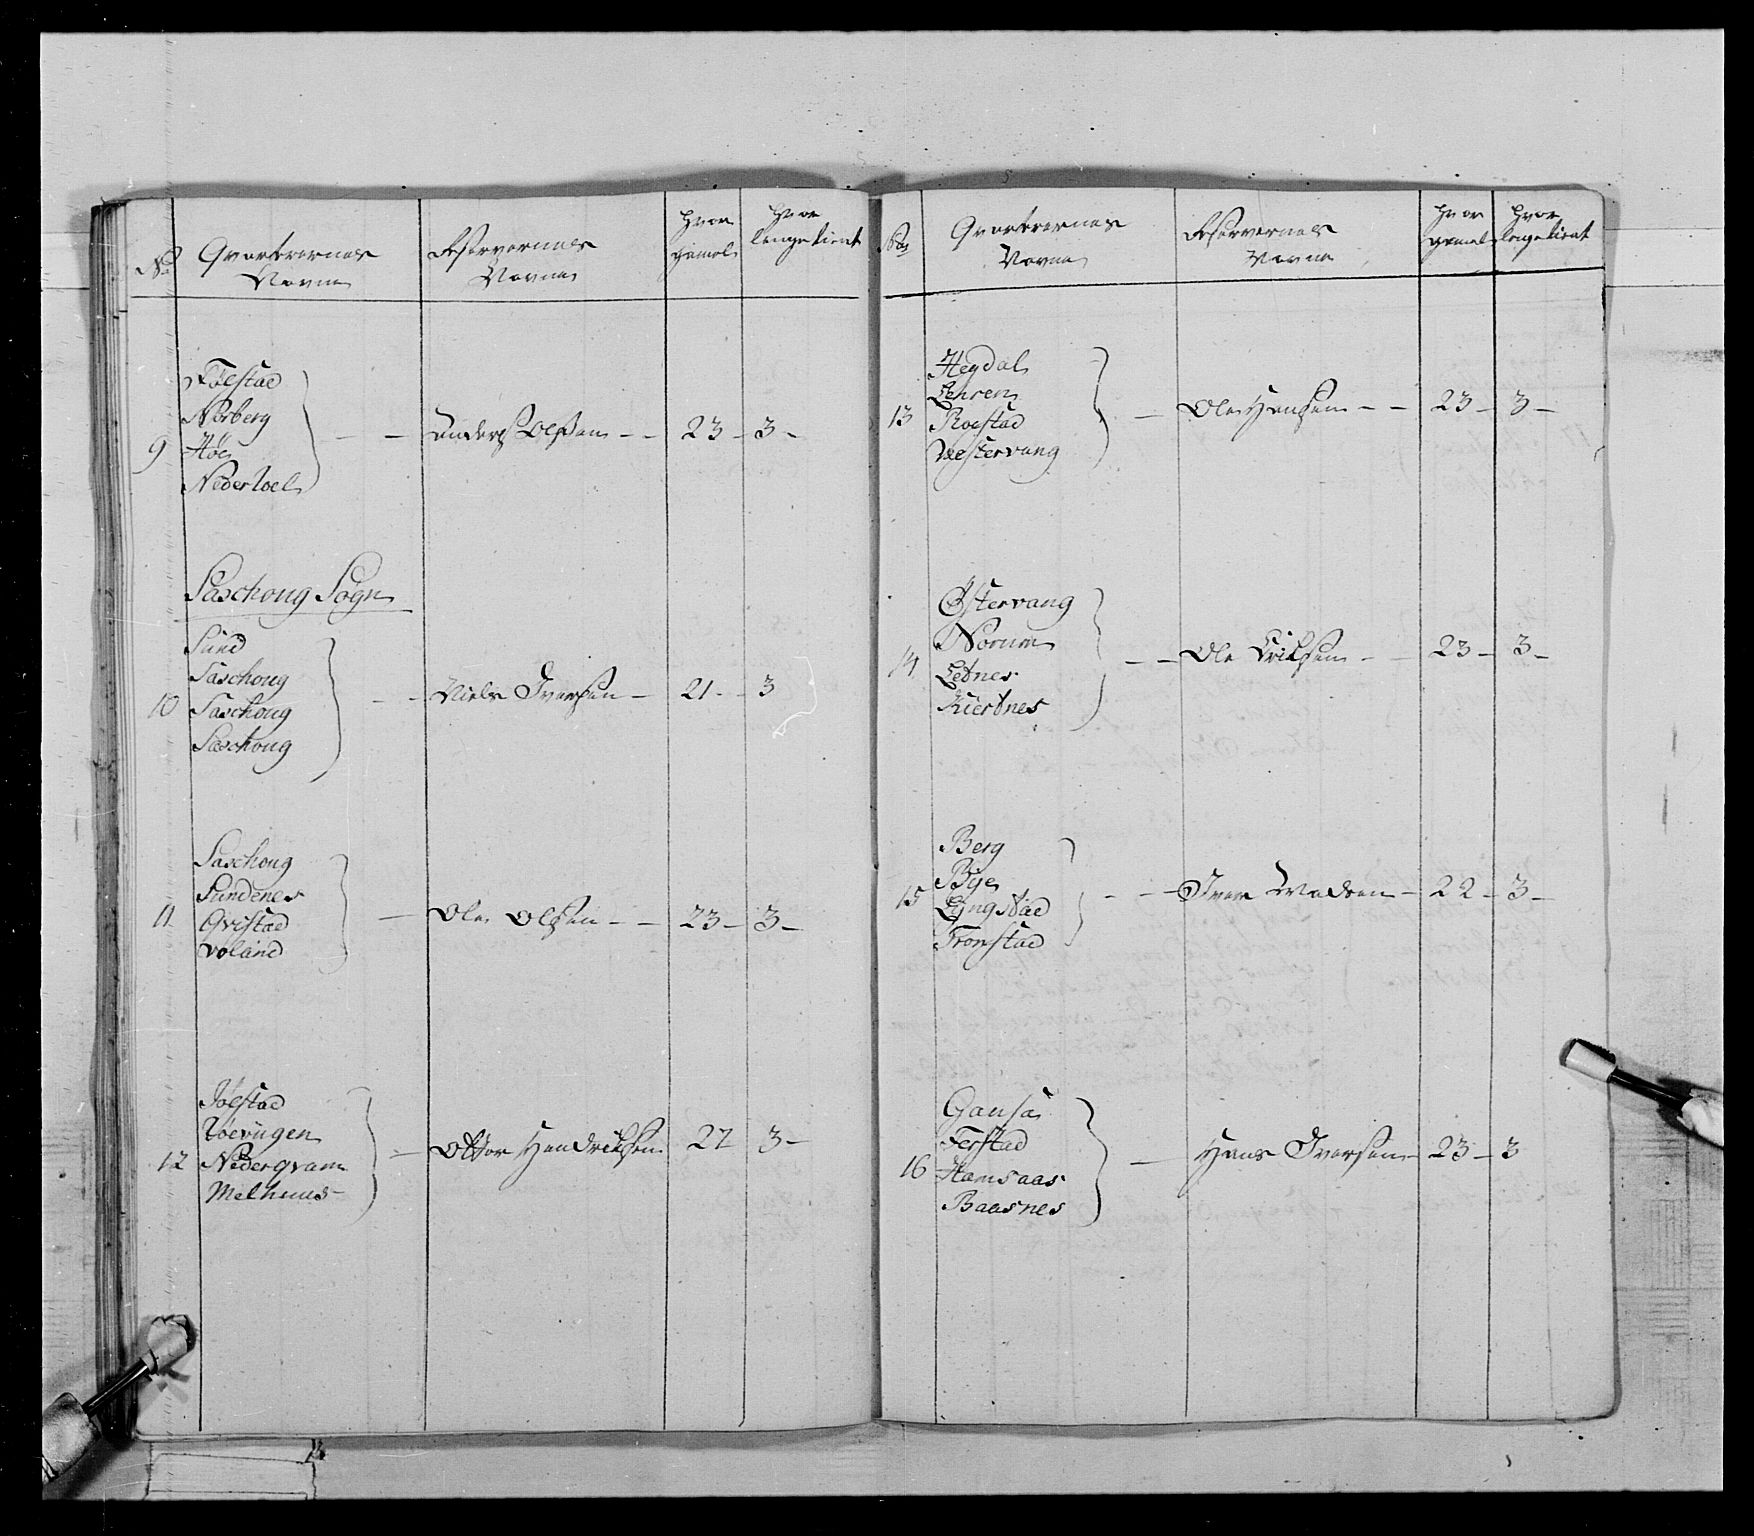 No
Qvarterernes
Navne
Reservernes
Navne
hvor
gamel
hvor
lenge tient
9
Følstad
Norberg
Høe
Neder Voel
Anders Olsen - - 23 - 3 -
Saschoug Sogn
10
Sund
Saschoug
Saschoug
Saschoug
Niels Iversen - 21 - 3
11
Saschoug
Sundenes
Qvistad
Voland
Ole Olsen - - 23 - 3 -
12
Jølstad
Nedergvam
Melhuus
Ottor Hendriksen 22 3 -
No
Qvarterernes
Navne
Reservernes
Navne
hvor
gamel
hvor
lenge tient
13
Hegdal
Lehren
Roestad
Vestervang
Ole Hansen - - 23 - 3 -
14
Østervang
Norum
Letnes
Kiertnes
Ole Eriksen - - 23 - 3 -
15
Berg
Bye
Lyngstad
Tronstad
Iver Madsen - 22 - 3 -
16
Gausa
Ferstad
Hamsaas
Baasnes
Hans Iversen - 23 - 3